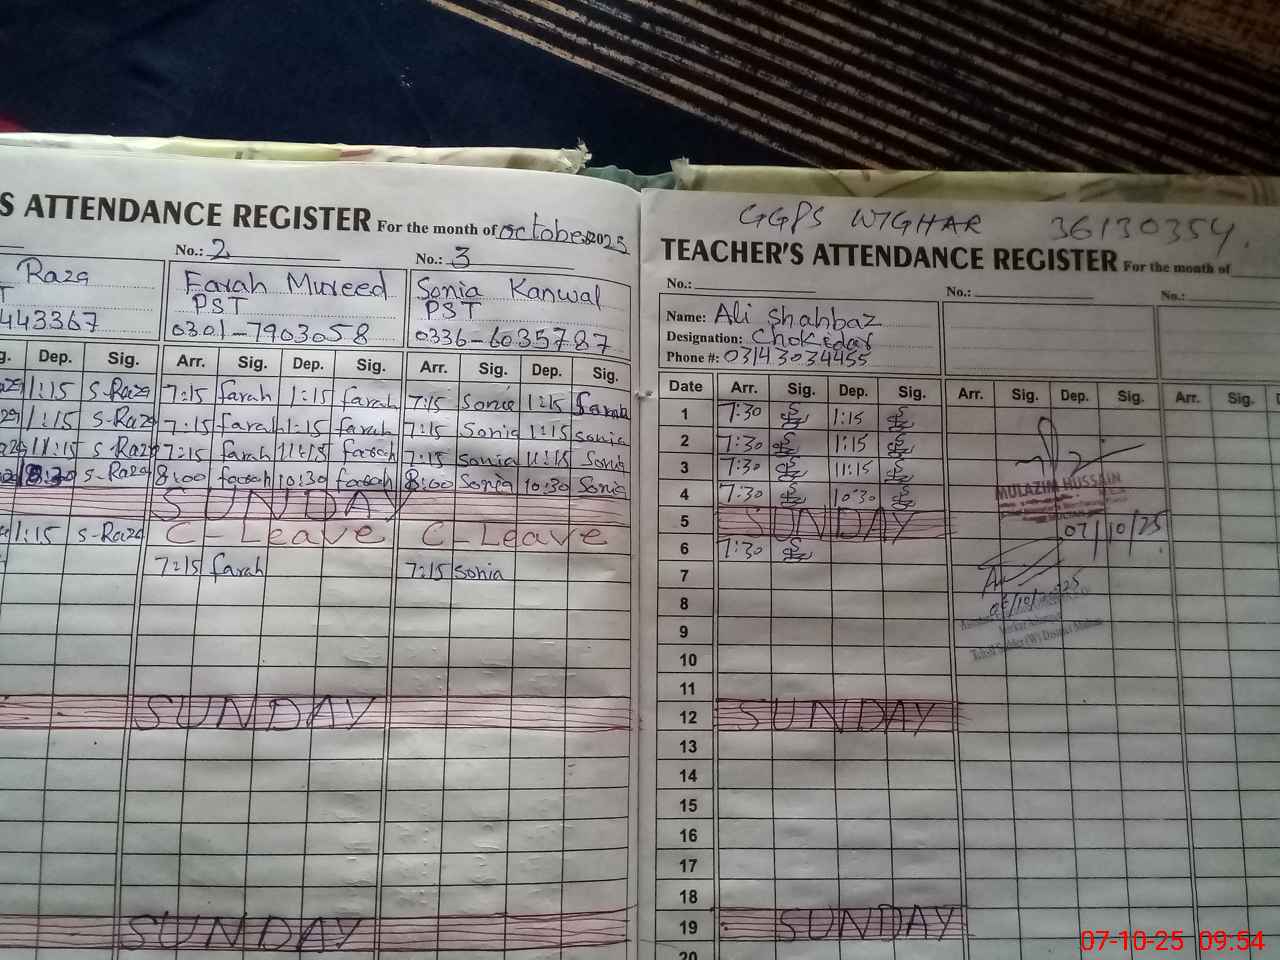 S ATTENDANCE REGISTER For the month of October 2025
No.: 2
No.: 3
Raza
Farah Mureed
Sonia Kanwal
T
PST
PST
443367
0301-7903058
0336-6035787
g. Dep. Sig. Arr. Sig. Dep. Sig. Arr. Sig. Dep. Sig.
1:15 S-Raza 7:15 farah 1:15 farah 7:15 Sonia 1:15
1:15 S-Raza 7:15 farah 1:15 farah 7:15 Sonia 1:15 Sonia
11:15 S-Raza 7:15 farah 11:15 farah 7:15 Sonia 11:15 Sonia
S-Raza 8:00 farah 10:30 farah 8:00 Sonia 10:30 Sonia
SUNDAY
1:15 S-Raza C-Leave C-Leave
7:15 farah 7:15 Sonia
SUNDAY
SUNDAY
GGPS WIGHAR 36130354.
TEACHER'S ATTENDANCE REGISTER For the month of
No.:
No.:
No.:
Name: Ali Shahbaz
Designation: Chokedar
Phone #: 03143034455
Date Arr. Sig. Dep. Sig. Arr. Sig. Dep. Sig. Arr. Sig. D
1 7:30 1:15
2 7:30 1:15
3 7:30 11:15
4 7:30 10:30
MULAZIM HUSSAIN
5 SUNDAY
07/10/25
6 7:30
7
8
9
10
11
12 SUNDAY
13
14
15
16
17
18
19 SUNDAY
20
07-10-25 09:54